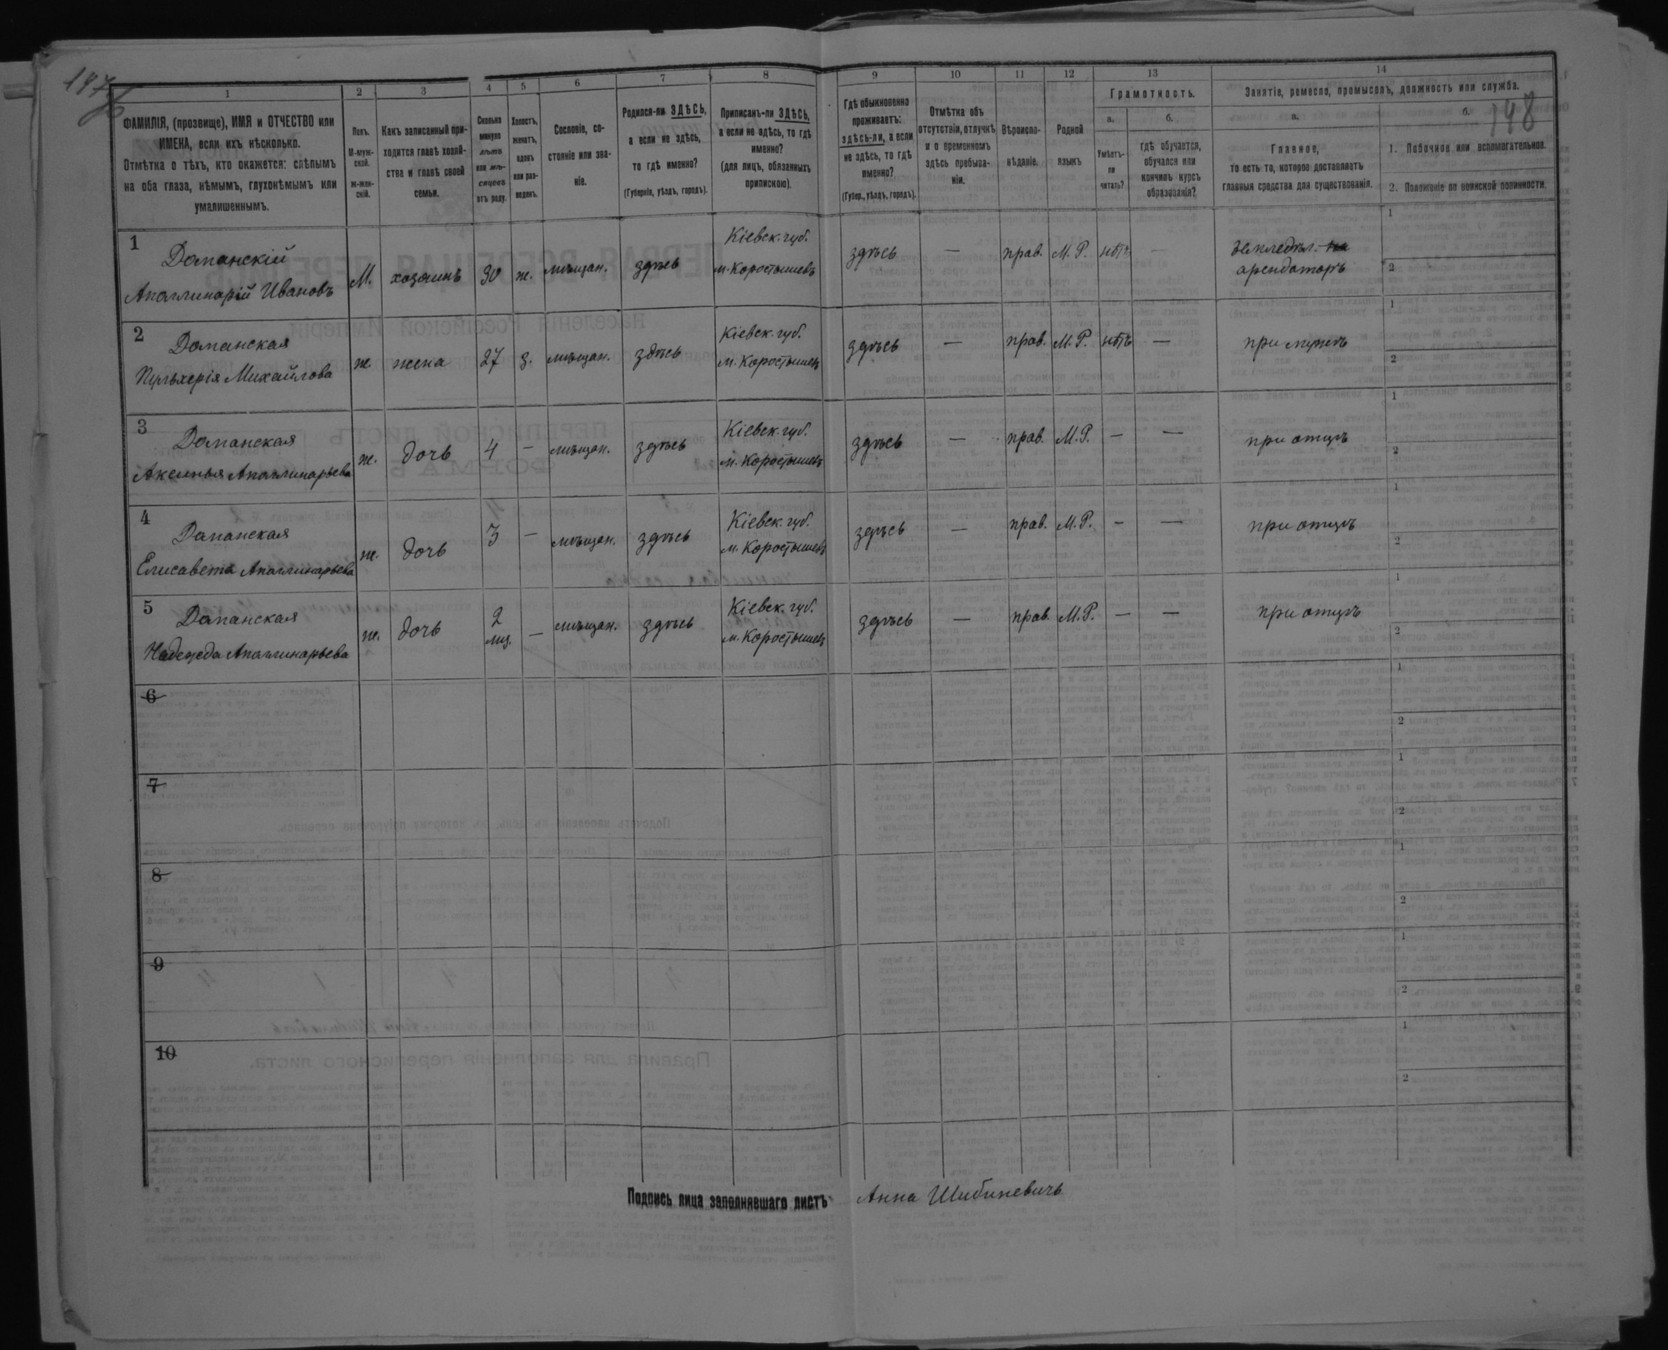 197
198
1 2 3 4 5 6 7 8 9 10 11 12 13 14
ФАМИЛІЯ, (прозвище), ИМЯ и ОТЧЕСТВО или
ИМЕНА, если ихъ нѣсколько.
Отмѣтка о тѣхъ, кто окажется: слѣпымъ
на оба глаза, нѣмымъ, глухонѣмымъ или
умалишеннымъ.
Полъ.
М-муж-
ской.
ж-жен-
скій.
Какъ записанный при-
ходится главѣ хозяй-
ства и главѣ своей
семьи.
Сколько
минуло
лѣтъ
или мѣ-
сяцевъ
отъ роду.
Холостъ,
женатъ,
вдовъ
или раз-
веденъ.
Сословіе, со-
стояніе или зва-
ніе.
Родился-ли ЗДѢСЬ,
а если не здѣсь,
то гдѣ именно?
(Губернія, уѣздъ, городъ).
Приписанъ-ли ЗДѢСЬ,
а если не здѣсь, то гдѣ
именно?
(для лицъ, обязанныхъ
припискою).
Гдѣ обыкновенно
проживаетъ:
здѣсь-ли, а если
не здѣсь, то гдѣ
именно?
(Губер., уѣздъ, городъ).
Отмѣтка объ
отсутствіи, отлучкѣ
и о временномъ
здѣсь пребыва-
ніи.
Вѣроиспо-
вѣданіе.
Родной
языкъ
Грамотность.
а.
Умѣетъ-
ли
читать?
б.
гдѣ обучается,
обучался или
кончилъ курсъ
образованія?
Занятіе, ремесло, промыселъ, должность или служба.
а.
Главное,
то есть то, которое доставляетъ
главныя средства для существованія.
б.
1. Побочное или вспомогательное.
2. Положеніе по воинской повинности
1 Доманскій
Аполлинарій Ивановъ М. хозяинъ 30 ж. мѣщан. здѣсь Кіевск. губ.
м. Коростышевъ здѣсь — прав. М. Р. нѣтъ — земледѣл.
арендаторъ 1 2
2 Доманская
Пульхерія Михайлова ж жена 27 з. мѣщан. здѣсь Кіевск. губ.
м. Коростышевъ здѣсь — прав. М. Р. нѣтъ — при мужѣ 1 2
3 Доманская
Аксинья Аполлинарьева ж. дочь 4 — мѣщан. здѣсь Кіевск. губ.
м. Коростышевъ здѣсь — прав. М. Р. — — при отцѣ 1 2
4 Доманская
Елисавета Аполлинарьева ж. дочь 3 — мѣщан. здѣсь Кіевск. губ.
м. Коростышевъ здѣсь — прав. М. Р. — — при отцѣ 1 2
5 Доманская
Надежда Аполлинарьева ж. дочь 2
мѣс. — мѣщан. здѣсь Кіевск. губ.
м. Коростышевъ здѣсь — прав. М. Р. — — при отцѣ 1 2
6 1 2
7 1 2
8 1 2
9 1 2
10 1 2
Подпись лица заполнявшаго листъ Анна Шибиневичъ